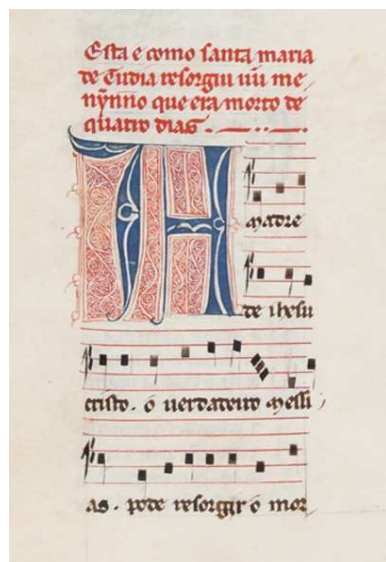 Esta e como santa maria
de Tudia resorgiu uũ me
nỹnno que era morto de
quatro dias.
A Madre
de ihesu
cristo. o uerdadeiro messi
as. pode resorgir o mor